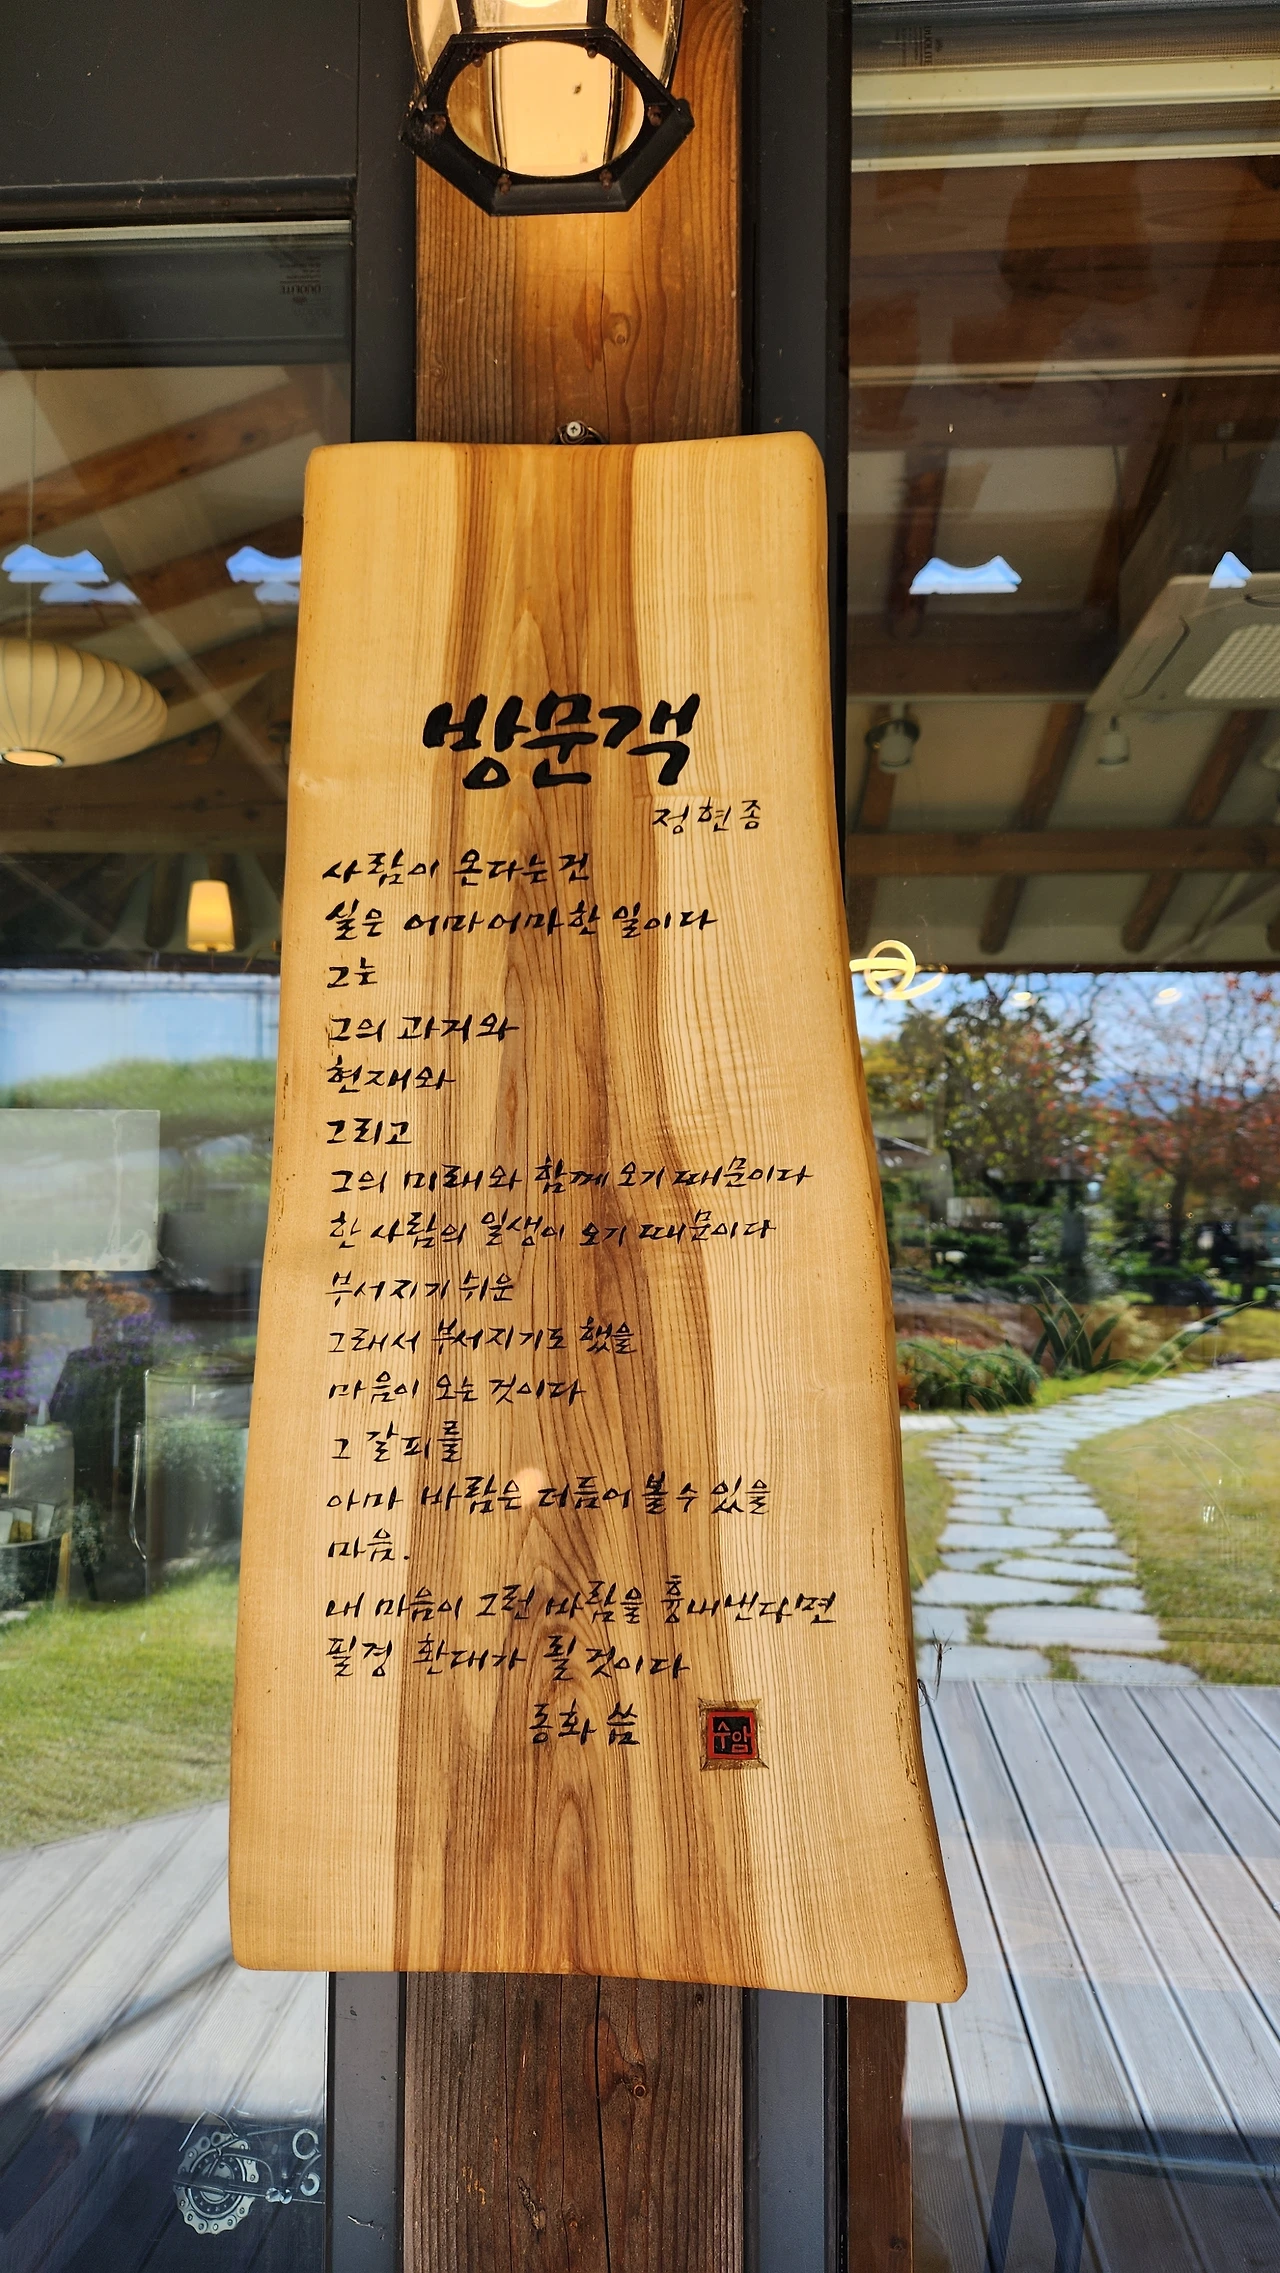 방문객
정현종
사람이 온다는 건
실은 어마어마한 일이다
그는
그의 과거와
현재와
그리고
그의 미래와 함께 오기 때문이다
한 사람의 일생이 오기 때문이다
부서지기 쉬운
그래서 부서지기도 했을
마음이 오는 것이다
그 갈피를
아마 바람은 더듬어 볼 수 있을
마음.
내 마음이 그런 바람을 흉내낸다면
필경 환대가 될 것이다
동화 씀
수암